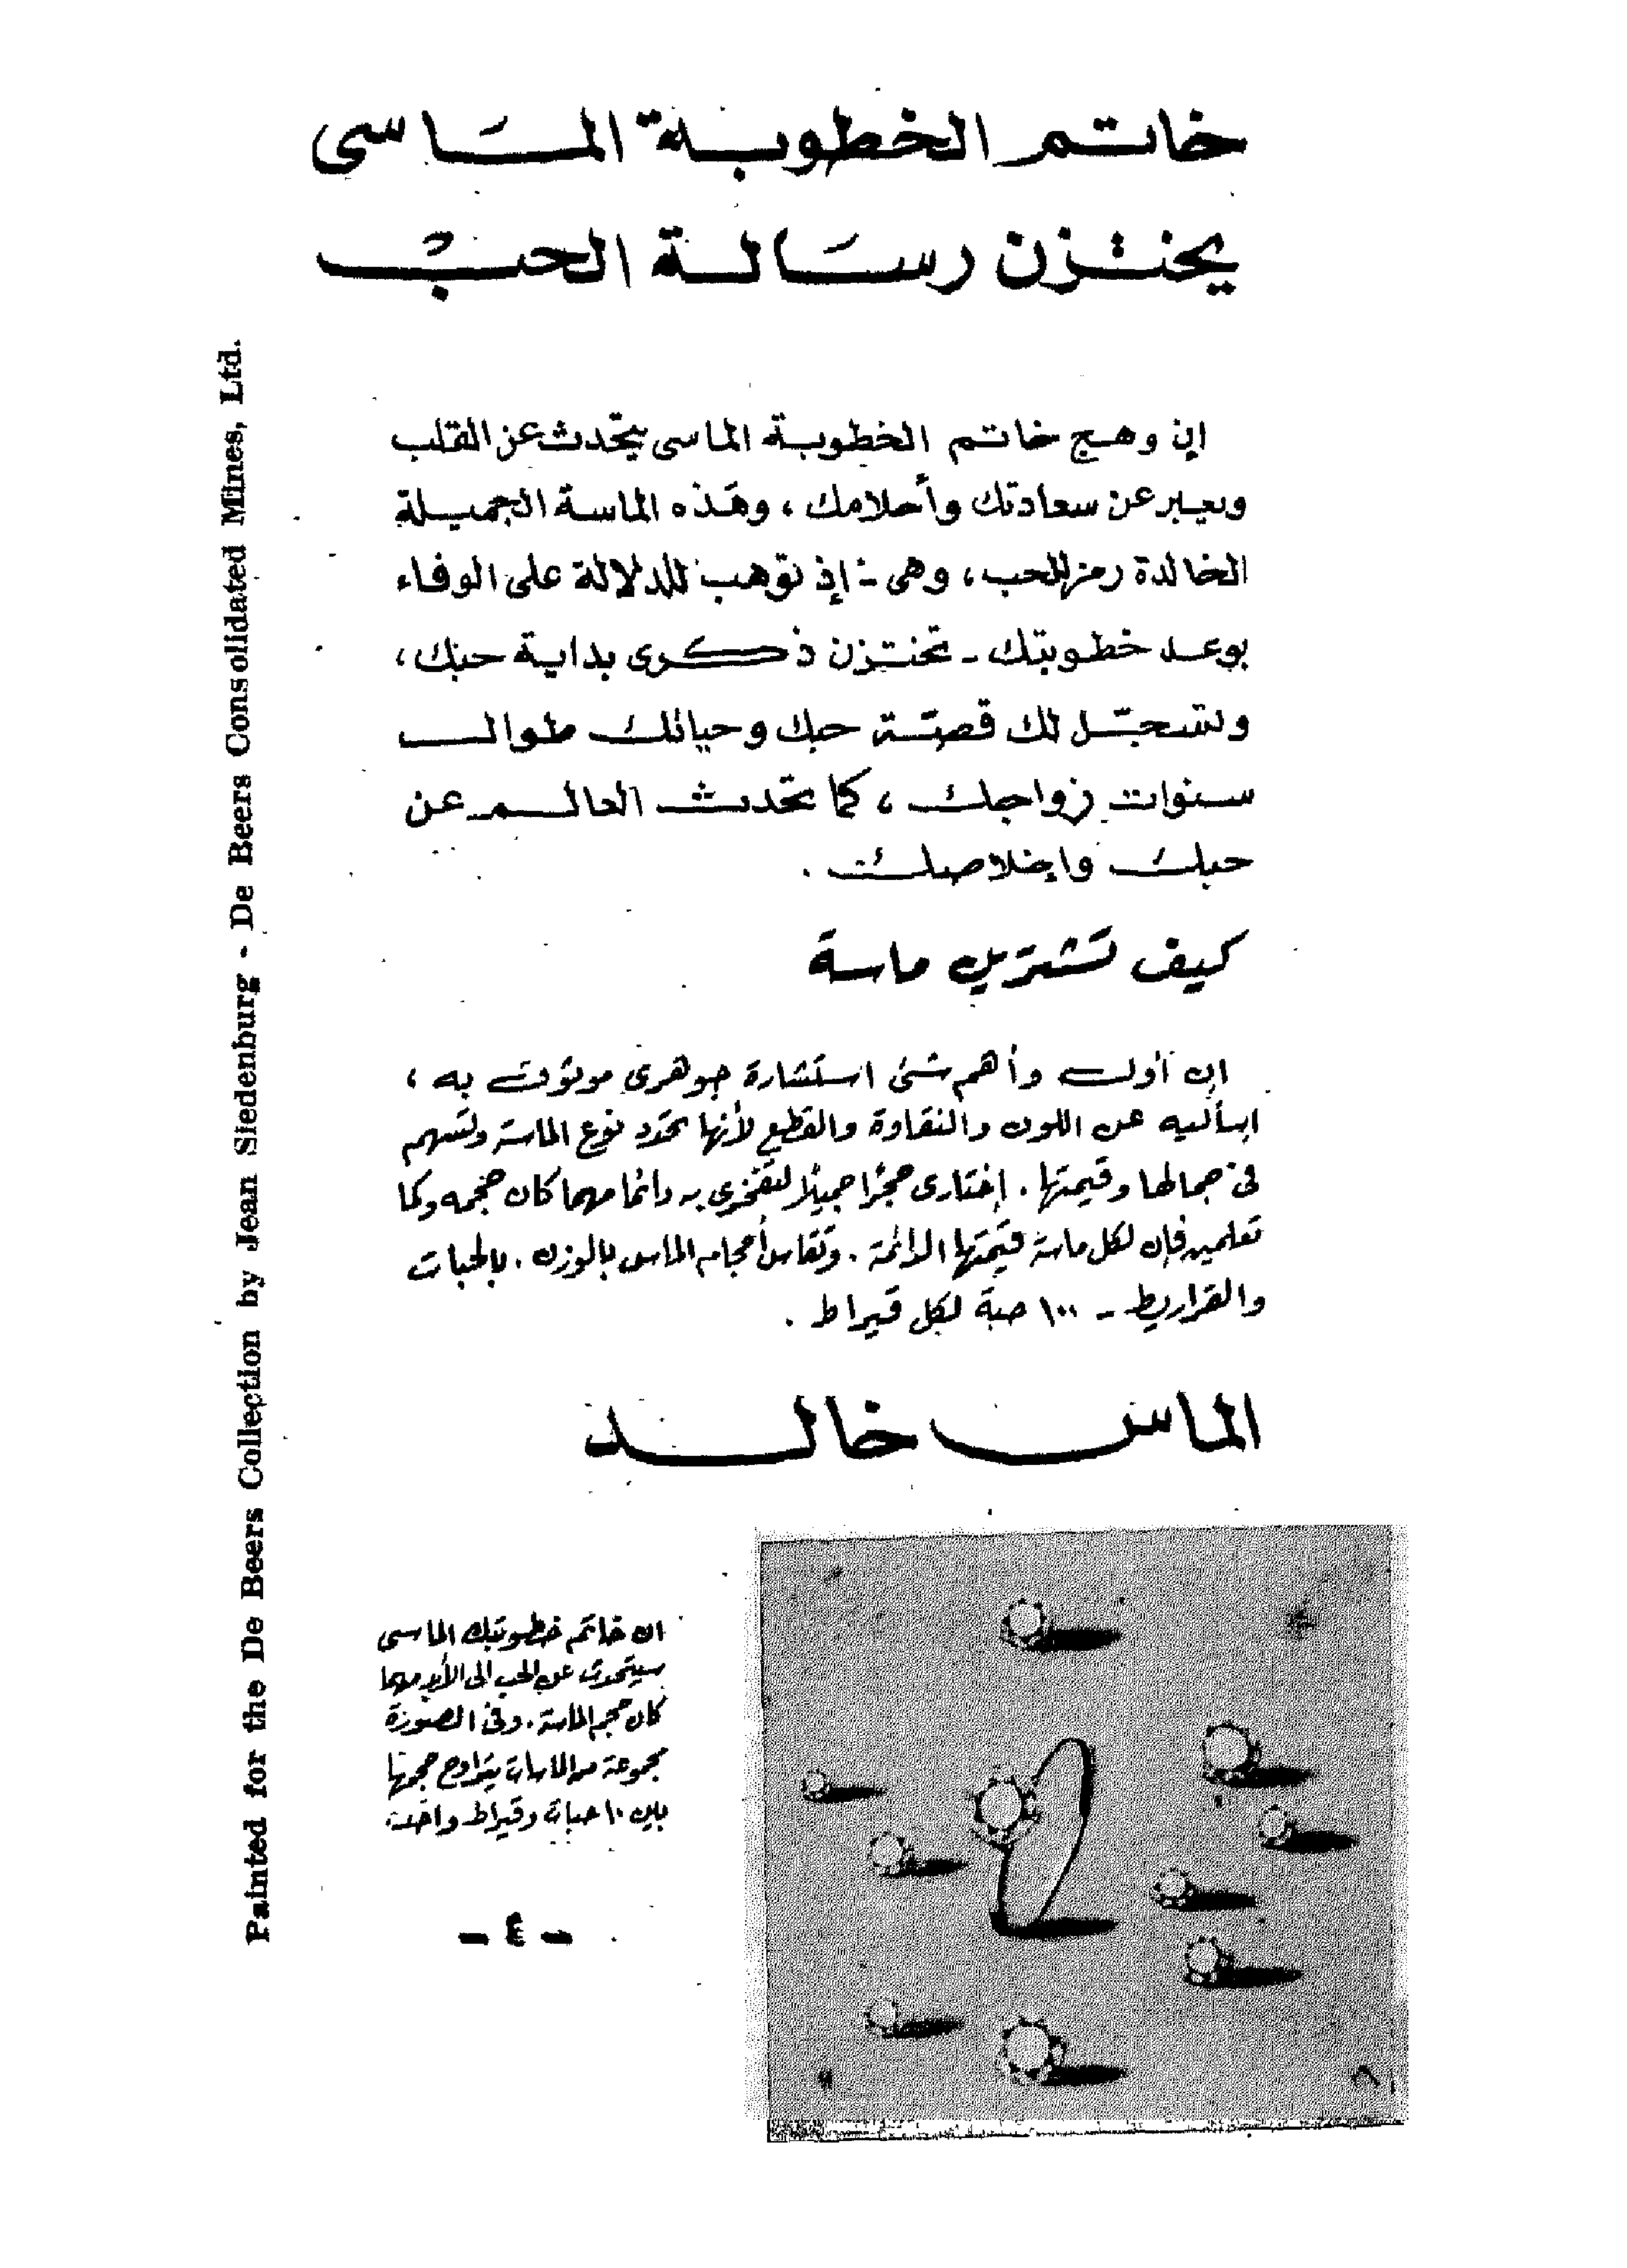 خاتم الخطوبة الماسى
يختزن رسالة الحب
إن وهج خاتم الخطوبة الماسى يتحدث عن القلب
ويعبر عن سعادتك وأحلامك ، وهذه الماسة الجميلة
الخالدة رمز للحب ، وهى - إذ توهب للدلالة على الوفاء
بوعد خطوبتك - تختزن ذكرى بداية حبك ،
وتسجّل لك قصّة حبك وحياتك طوال
سنوات زواجك ، كما تحدث العالم عن
حبك وإخلاصك .
كيف تشترين ماسة
إن أول وأهم شئ استشارة جوهرى موثوق به ،
إسأليه عن اللون والنقاوة والقطع لأنها تحدد نوع الماسة وتسهم
فى جمالها وقيمتها . إختارى حجرًا جميلًا لتفخرى به دائما مهما كان حجمه وكما
تعلمين فإن لكل ماسة قيمتها الدائمة . وتقاس أحجام الماس بالوزن . بالحبات
والقراريط - ١٠٠ حبة لكل قيراط .
الماس خالد
ان خاتم خطوبتك الماسى
سيتحدث عن الحب الى الأبد مهما
كان حجم الماسة . وفى الصورة
مجموعة من الماسات يتراوح حجمها
بين ١٠ حبات وقيراط واحد
- ٤ -
Painted for the De Beers Collection by Jean Siedenburg - De Beers Consolidated Mines, Ltd.